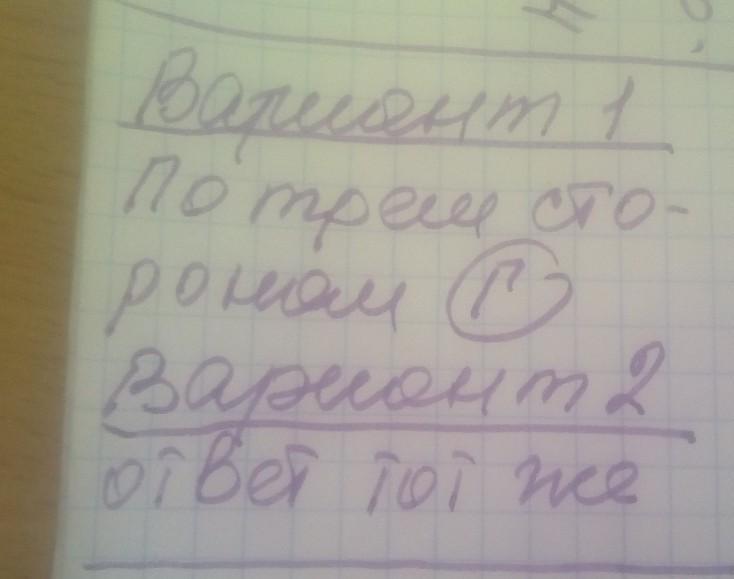 Вариант 1
По трем сто-
ронам Г
Вариант 2
ответ тот же